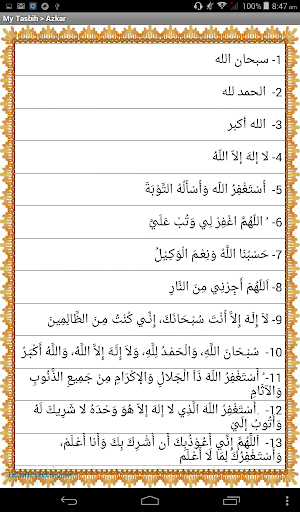 100% 8:47 am
My Tasbih > Azkar
1- سبحان الله
2- الحمد لله
3- الله أكبر
4- لا إلهَ إلاَّ اللَّهُ
5- أَسْتَغْفِرُ اللَّهَ وَأَسْأَلُهُ التَّوْبَةَ
6- ُ اَللَّهُمَّ اغْفِرْ لِي وَتُبْ عَلَيَّ
7- حَسْبُنَا اللَّهُ وَنِعْمَ الْوَكِيْلُ
8- اَللَّهُمَّ أَجِرْنِي مِنَ النَّارِ
9- لاَ إِلَهَ إِلاَّ أَنْتَ سُبْحَانَكَ، إِنِّي كُنْتُ مِنَ الظَّالِمِينَ
10- سُبْحَانَ اللَّهِ، وَالْحَمْدُ لِلَّهِ، وَلاَ إِلَهَ إِلاَّ اللَّهُ، وَاللَّهُ أَكْبَرُ
11- ُ أَسْتَغْفِرُ اللَّهَ ذَاْ الْجَلالِ وَالإِكْرَامِ مِنْ جَمِيعِ الذُّنُوبِ
وَالآثَامِ
12- أَسْتَغْفِرُ اللَّهَ الَّذِي لا إلهَ إلاَّ هوَ وَحْدَهُ لا شَرِيكَ لَهُ
وَأَتُوبُ إِلَيْهِ
13- اَللَّهُمَّ إِنِّي أَعُوْذُبِكَ أَنْ أُشْرِكَ بِكَ وَأَنَا أَعْلَمُ،
وَأَسْتَغْفِرُكَ لِمَا لا أَعْلَمُ